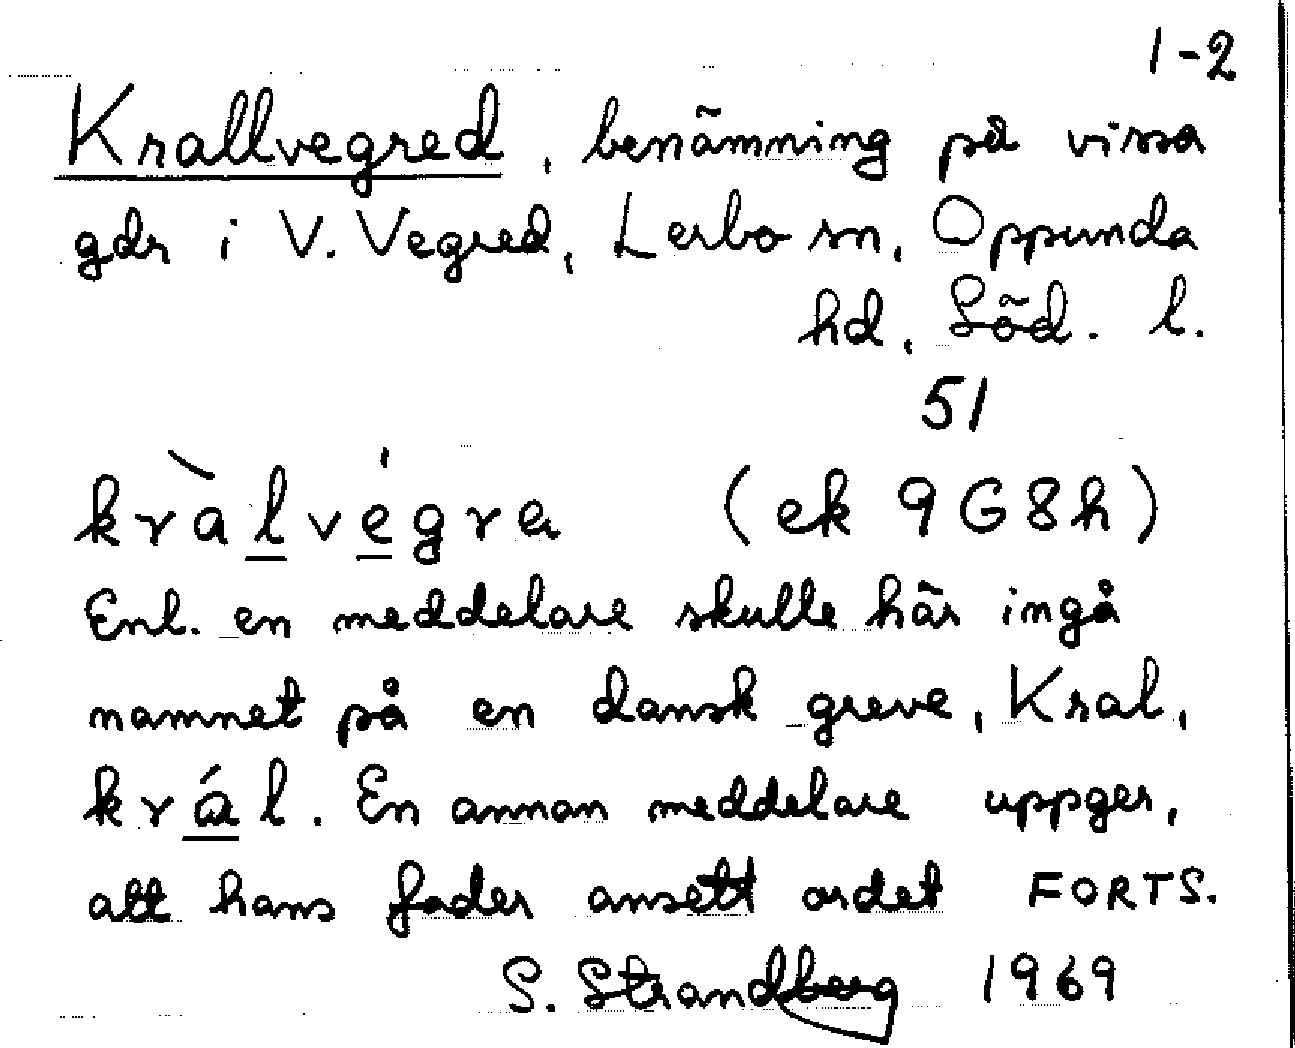 1-2
Krallvegred, benämning på vissa
gdr i V. Vegred, Lerbo sn, Oppunda
hd, Söd. l.
51
kràlvégra (ek 9G8h)
Enl. en meddelare skulle här ingå
namnet på en dansk greve, Kral,
král. En annan meddelare uppger,
att hans fader ansett ordet FORTS.
S. Strandberg 1969